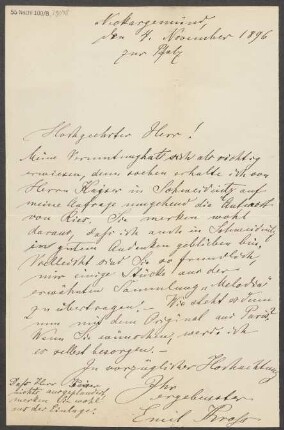 Neckargemünd,
den 4. November 1896
zur Pfalz
Hochgeehrter Herr!
Meine Vermutung hat sich als richtig
erwiesen, denn soeben erhalte ich von
Herrn Kaiser in Schweidnitz auf
meine Anfrage umgehend die Antwort
von Ries. Sie merken wohl
daraus, dass ich auch in Schweidnitz
in gutem Andenken geblieben bin.
Vielleicht sind Sie so freundlich,
mir einige Stücke aus der
erwähnten Sammlung "Melodia"
zu übertragen! – Wie steht es denn
nun mit dem Original aus Paris?
Wenn Sie wünschen, werde ich
es selbst besorgen. –
In vorzüglicher Hochachtung
Ihr
ergebenster
Emil
Dass Herr
nichts
merken Sie wohl
aus der Einlage.